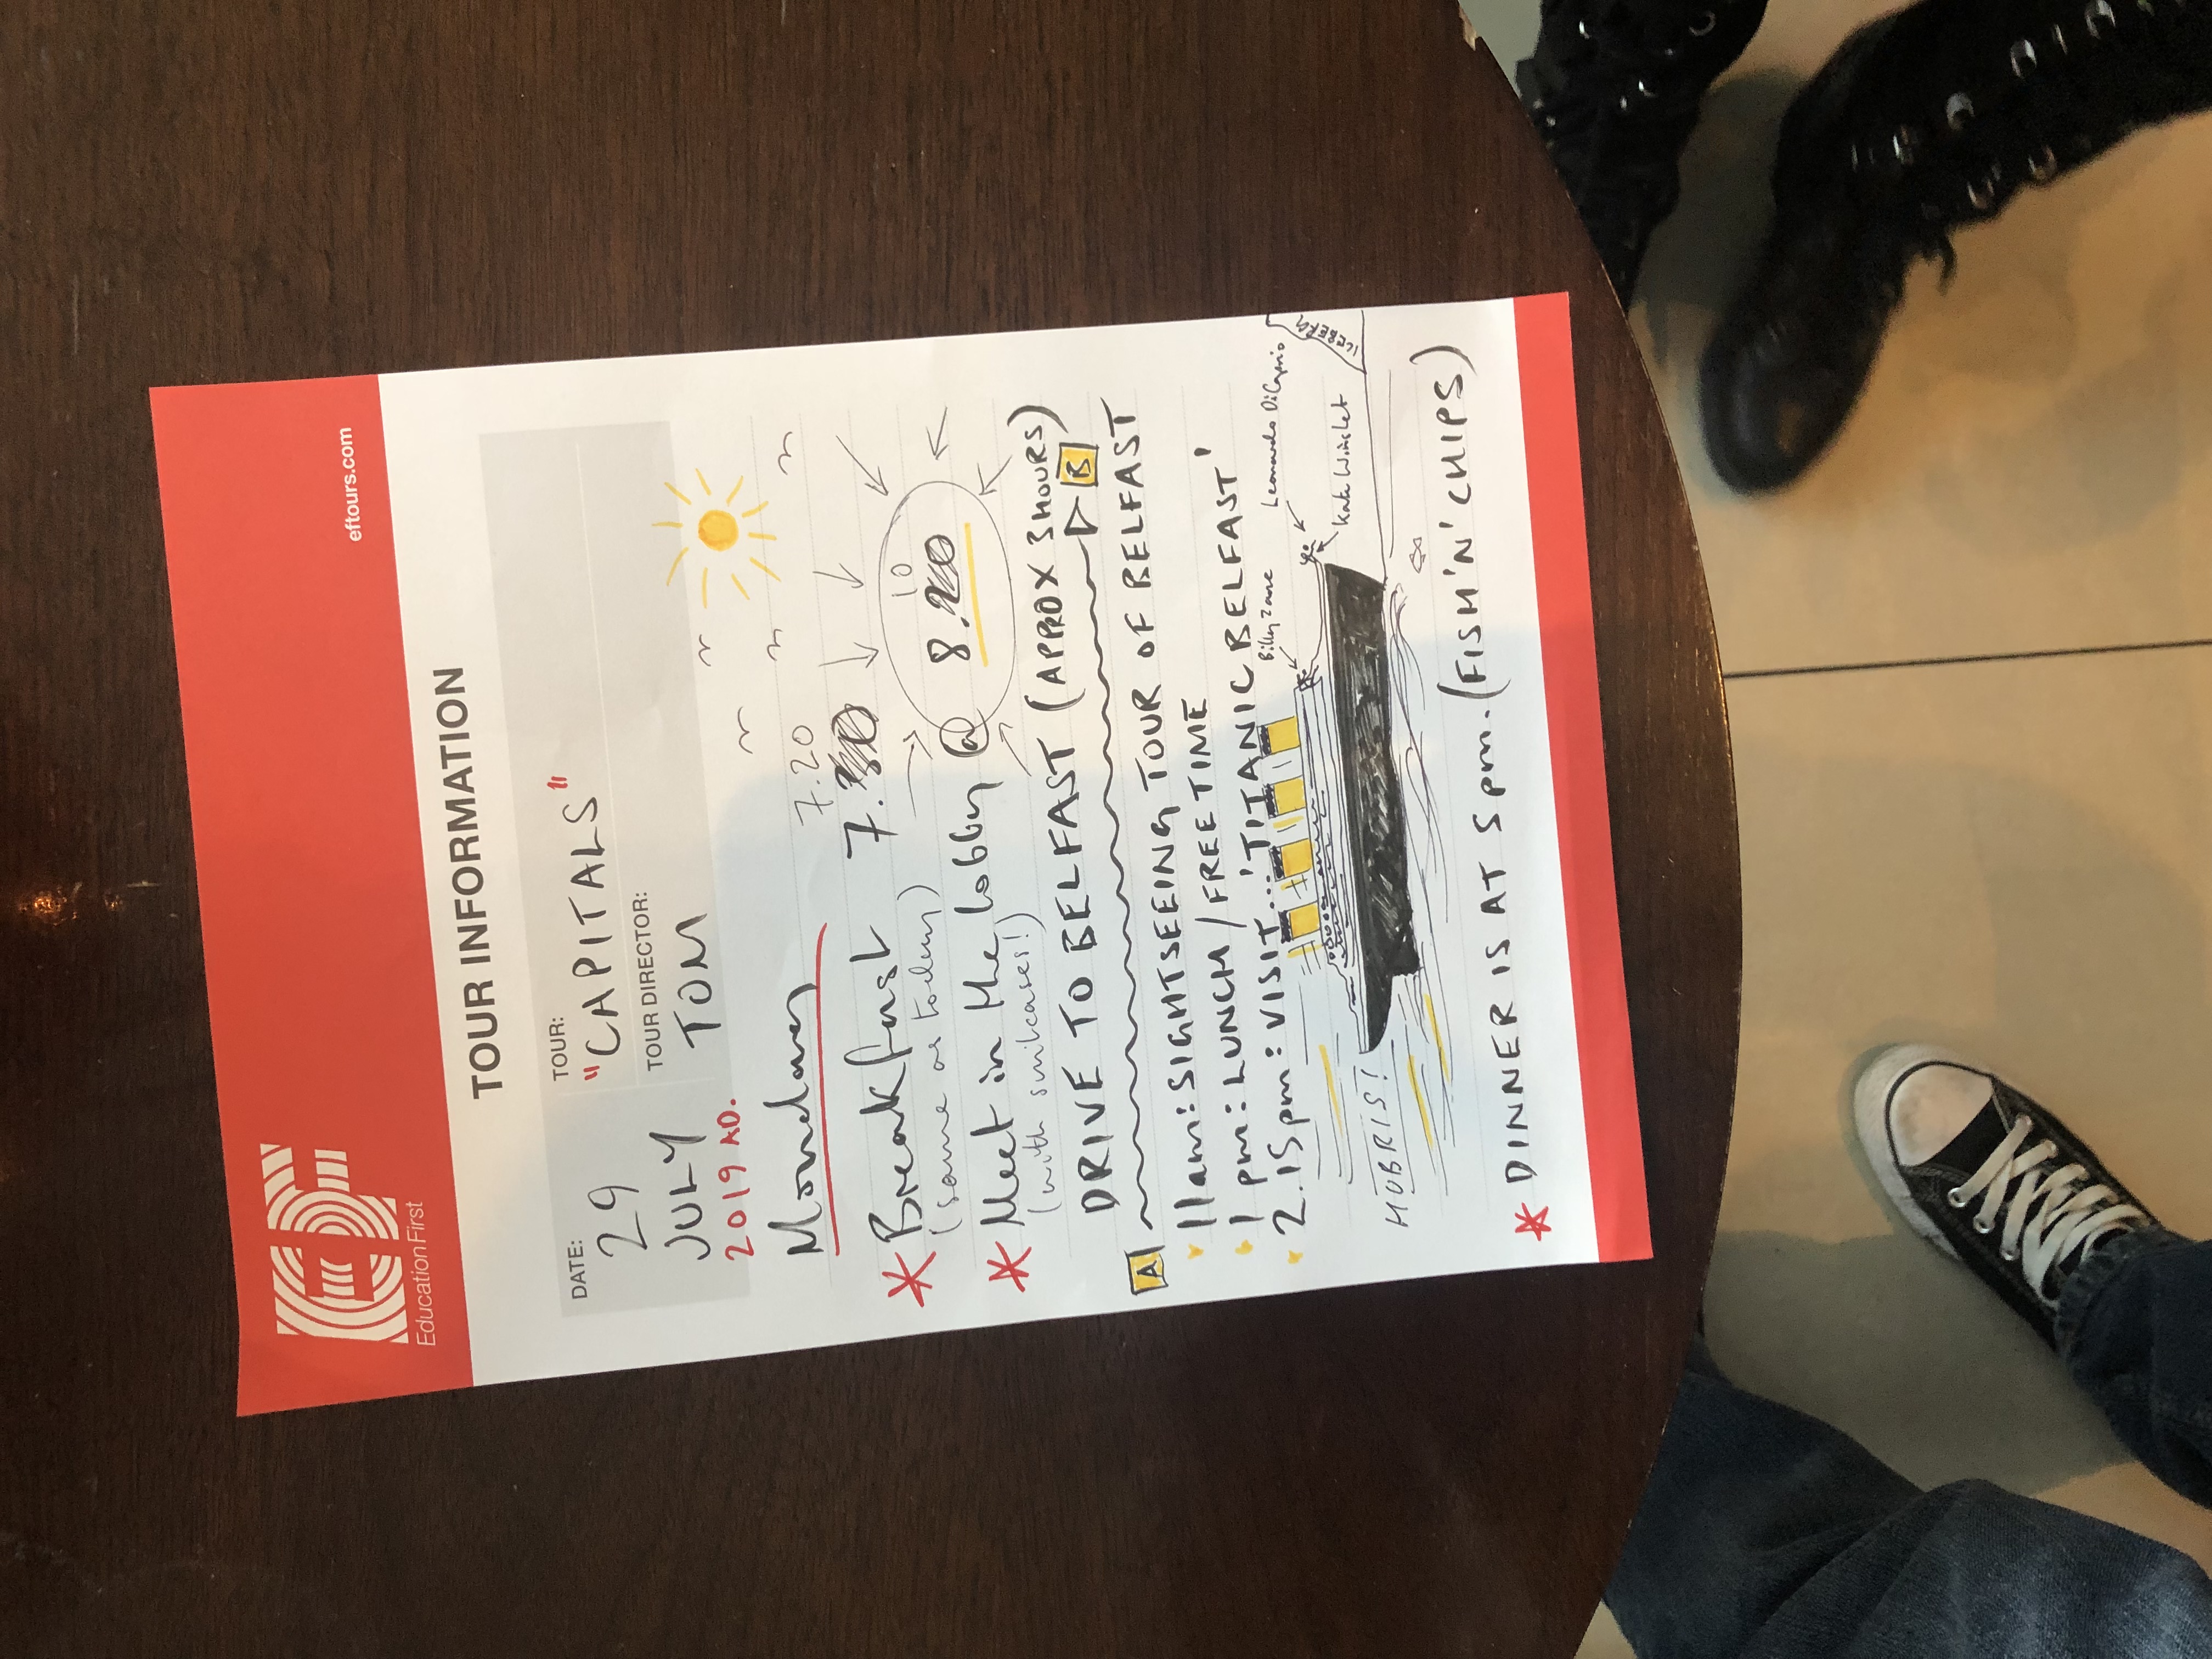 EF
Education First
eftours.com
TOUR INFORMATION
DATE:
29
JULY
2019 AD.
TOUR:
"CAPITALS"
TOUR DIRECTOR:
TOM
Monday
7.20
* Breakfast 7.30
(same as today)
10
* Meet in the lobby @ 8.20
(with suitcases!)
DRIVE TO BELFAST (APPROX 3 HOURS)
A B
11am: SIGHTSEEING TOUR OF BELFAST
1 pm: LUNCH / FREE TIME
2.15pm: VISIT... 'TITANIC BELFAST'
Billy Zane
Leonardo DiCaprio
Kate Winslet
ICEBERG
HUBRIS!
* DINNER IS AT 5pm. (FISH 'N' CHIPS)